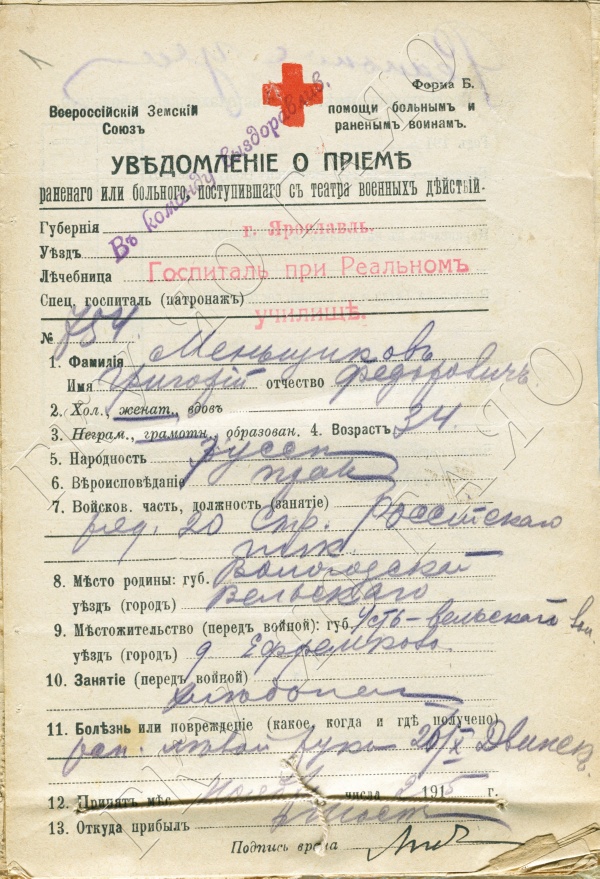 1
Форма Б.
Всероссійскій Земскій
Союзъ
помощи больнымъ и
раненымъ воинамъ.
Въ команду выздоравлив.
УВѢДОМЛЕНІЕ О ПРІЕМѢ
раненаго или больного, поступившаго съ театра военныхъ дѣйствій.
Губернія г. Ярославль.
Уѣздъ
Лѣчебница Госпиталь при Реальномъ
Спец. госпиталь (патронажъ)
училищѣ.
№ 754
1. Фамилія Меньщиковъ
Имя Григорій отчество Федоровичъ
2. Хол., женат., вдовъ
3. Неграм., грамотн., образован. 4. Возрастъ 34.
5. Народность русск
6. Вѣроисповѣданіе прав
7. Войсков. часть, должность (занятіе)
ряд. 20 Стр. Россійскаго
полк.
8. Мѣсто родины: губ. Вологодской
уѣздъ (городъ) Вельскаго
9. Мѣстожительство (передъ войной): губ. Усть-Вельскаго вол.
уѣздъ (городъ) д Ефремково
10. Занятіе (передъ войной)
хлѣбопаш
11. Болѣзнь или поврежденіе (какое, когда и гдѣ получено)
ран. лѣвой руки 26/X Двинск.
12. Принятъ мѣс. Ноября числа 1915 г.
13. Откуда прибылъ
Подпись врача
ГКУ ЯО ГАЯО